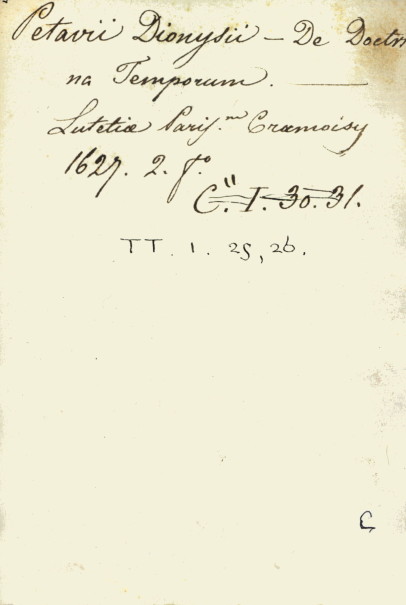 Petavii Dionysii — De Doctri
na Temporum. —
Lutetiæ Paris.^m Cramoisy
1627. 2. f.º
C." I. 30. 31.
TT. 1. 25, 26.
C